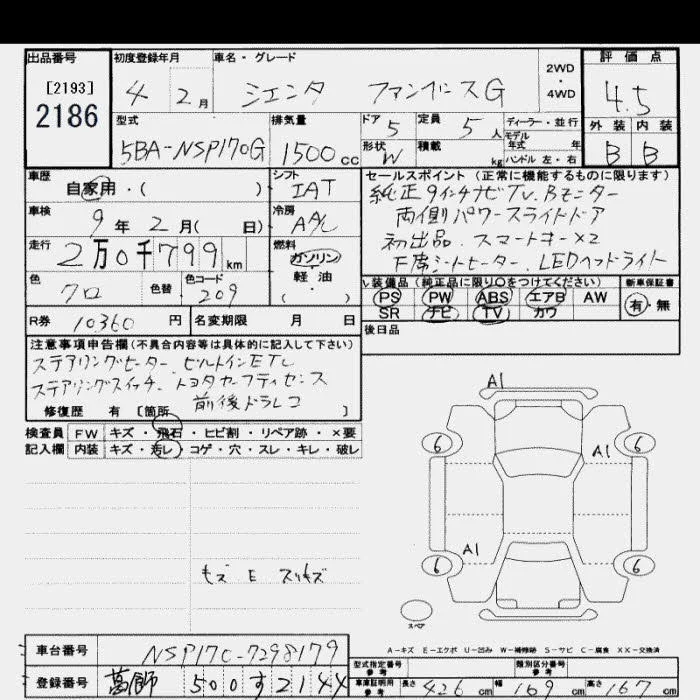 出品番号 初度登録年月 車名・グレード 2WD・4WD 評価点
[2193]
2186
4 2月 シエンタ ファンベースG 4.5
型式 排気量 ドア 5 定員 5人 ディーラー・並行 外装 内装
5BA-NSP170G 1500cc 形状 W 積載 kg モデル年式 年 B B
ハンドル 左・右
車歴 自家用・( ) シフト IAT
セールスポイント(正常に機能するものに限ります)
純正9インチナビTV.Bモニター
両側パワースライドドア
初出品.スマートキー×2
F席シートヒーター.LEDヘッドライト
車検 9年2月( 日) 冷房 AAC
走行 2万0千799km 燃料 ガソリン・軽油・( )
色 クロ 色替 色コード 209
装備品(純正品に限り○をつけてください) 新車保証書
PS PW ABS エアB AW 有・無
SR ナビ TV カワ
R券 10360円 名変期限 月 日
後日品
注意事項申告欄(不具合内容等は具体的に記入して下さい)
ステアリングヒーター.ビルトインETC
ステアリングスイッチ.トヨタセーフティセンス
前後ドラレコ
修復歴 有 [箇所 ]
検査員 FW キズ・飛石・ヒビ割・リペア跡・×要
記入欄 内装 キズ・汚レ・コゲ・穴・スレ・キレ・破レ
A1
6 6
A1
A1
6 6
スペア
E スリキズ
A-キズ E-エクボ U-凹み W-補修跡 S-サビ C-腐食 XX-交換済
車台番号 NSP170-7298179
型式指定番号 参考 類別区分番号 参考
登録番号 葛飾 500す
車庫証明用 参考 長さ 426cm 幅 169cm 高さ 167cm